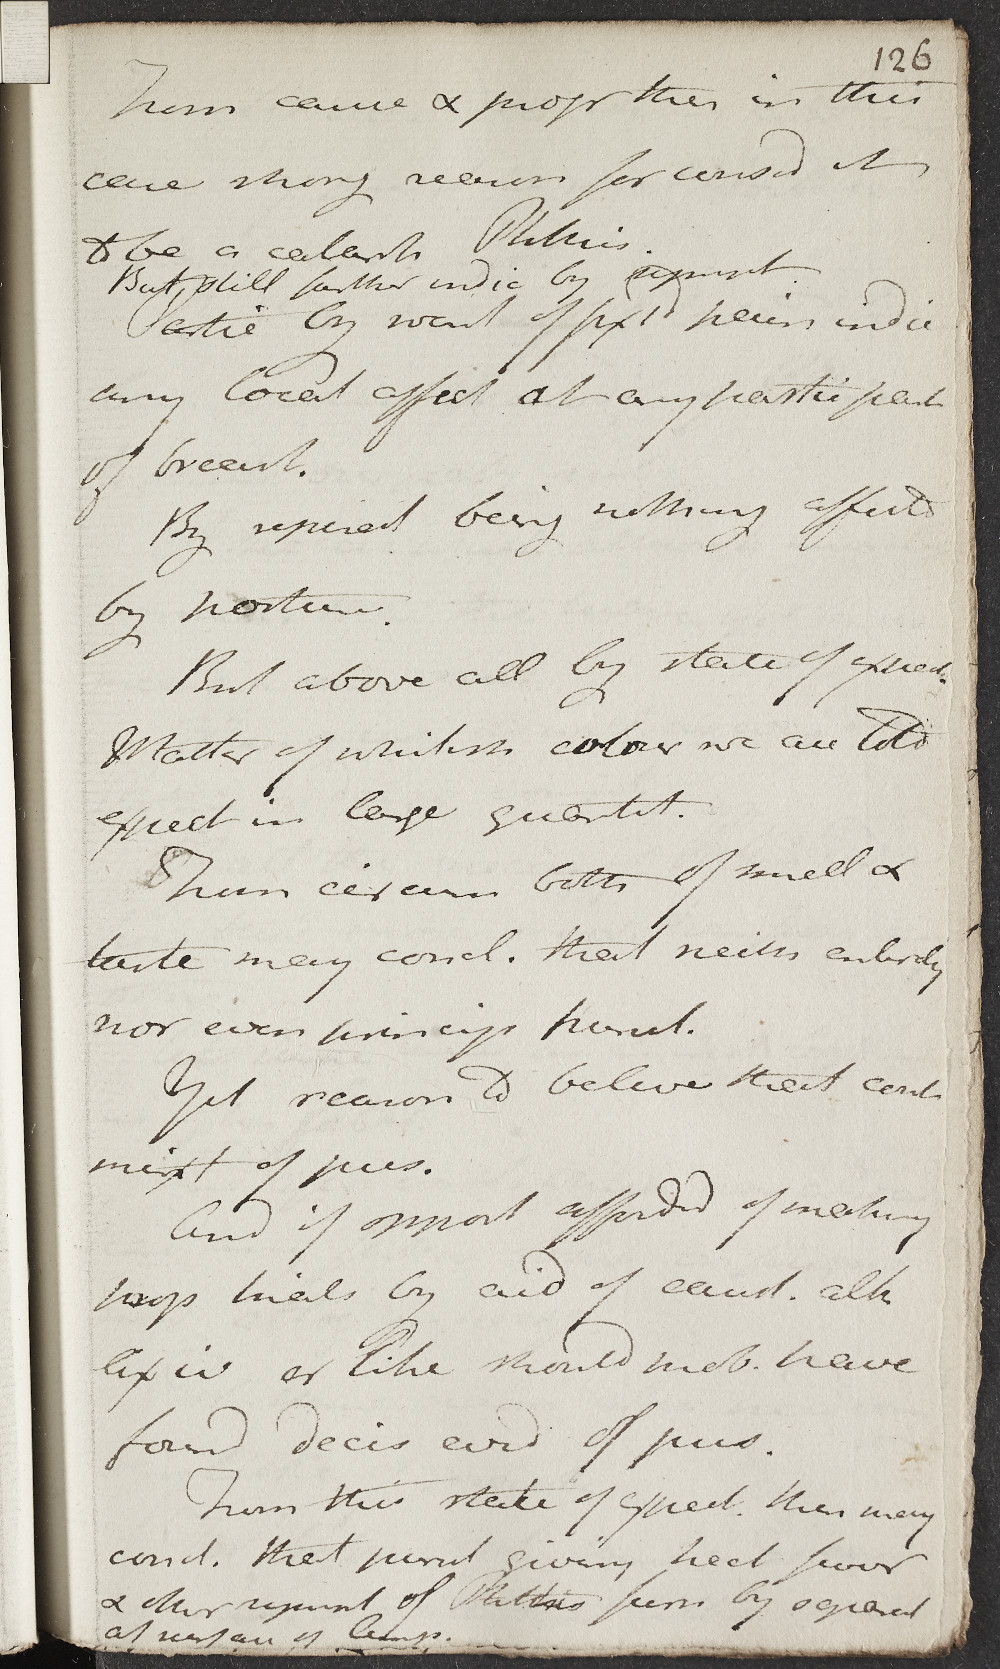 126
From cause & progr then in this
case strong reason for consid it
to be a catarrh Phthisis.
But still further indic by sympt
Partic by want of fixt pain indic
any local affect at any partic part
of breast.
By respirat being nothing affectd
by posture.
But above all by state of expect.
Matter of whitish colour we are told
expect in large quantit.
From circum both of smell &
taste may concl. that neith entirely
nor even princip purul.
Yet reason to believe that cont
mixt of pus.
And if opport afforded of making
prop trials by aid of caust. alk
lixiv or like should prob. have
found decis evid of pus.
From this state of expect. then may
concl. that purul giving hect fever
& other sympt of Phthisis form by separat
at surface of lungs.